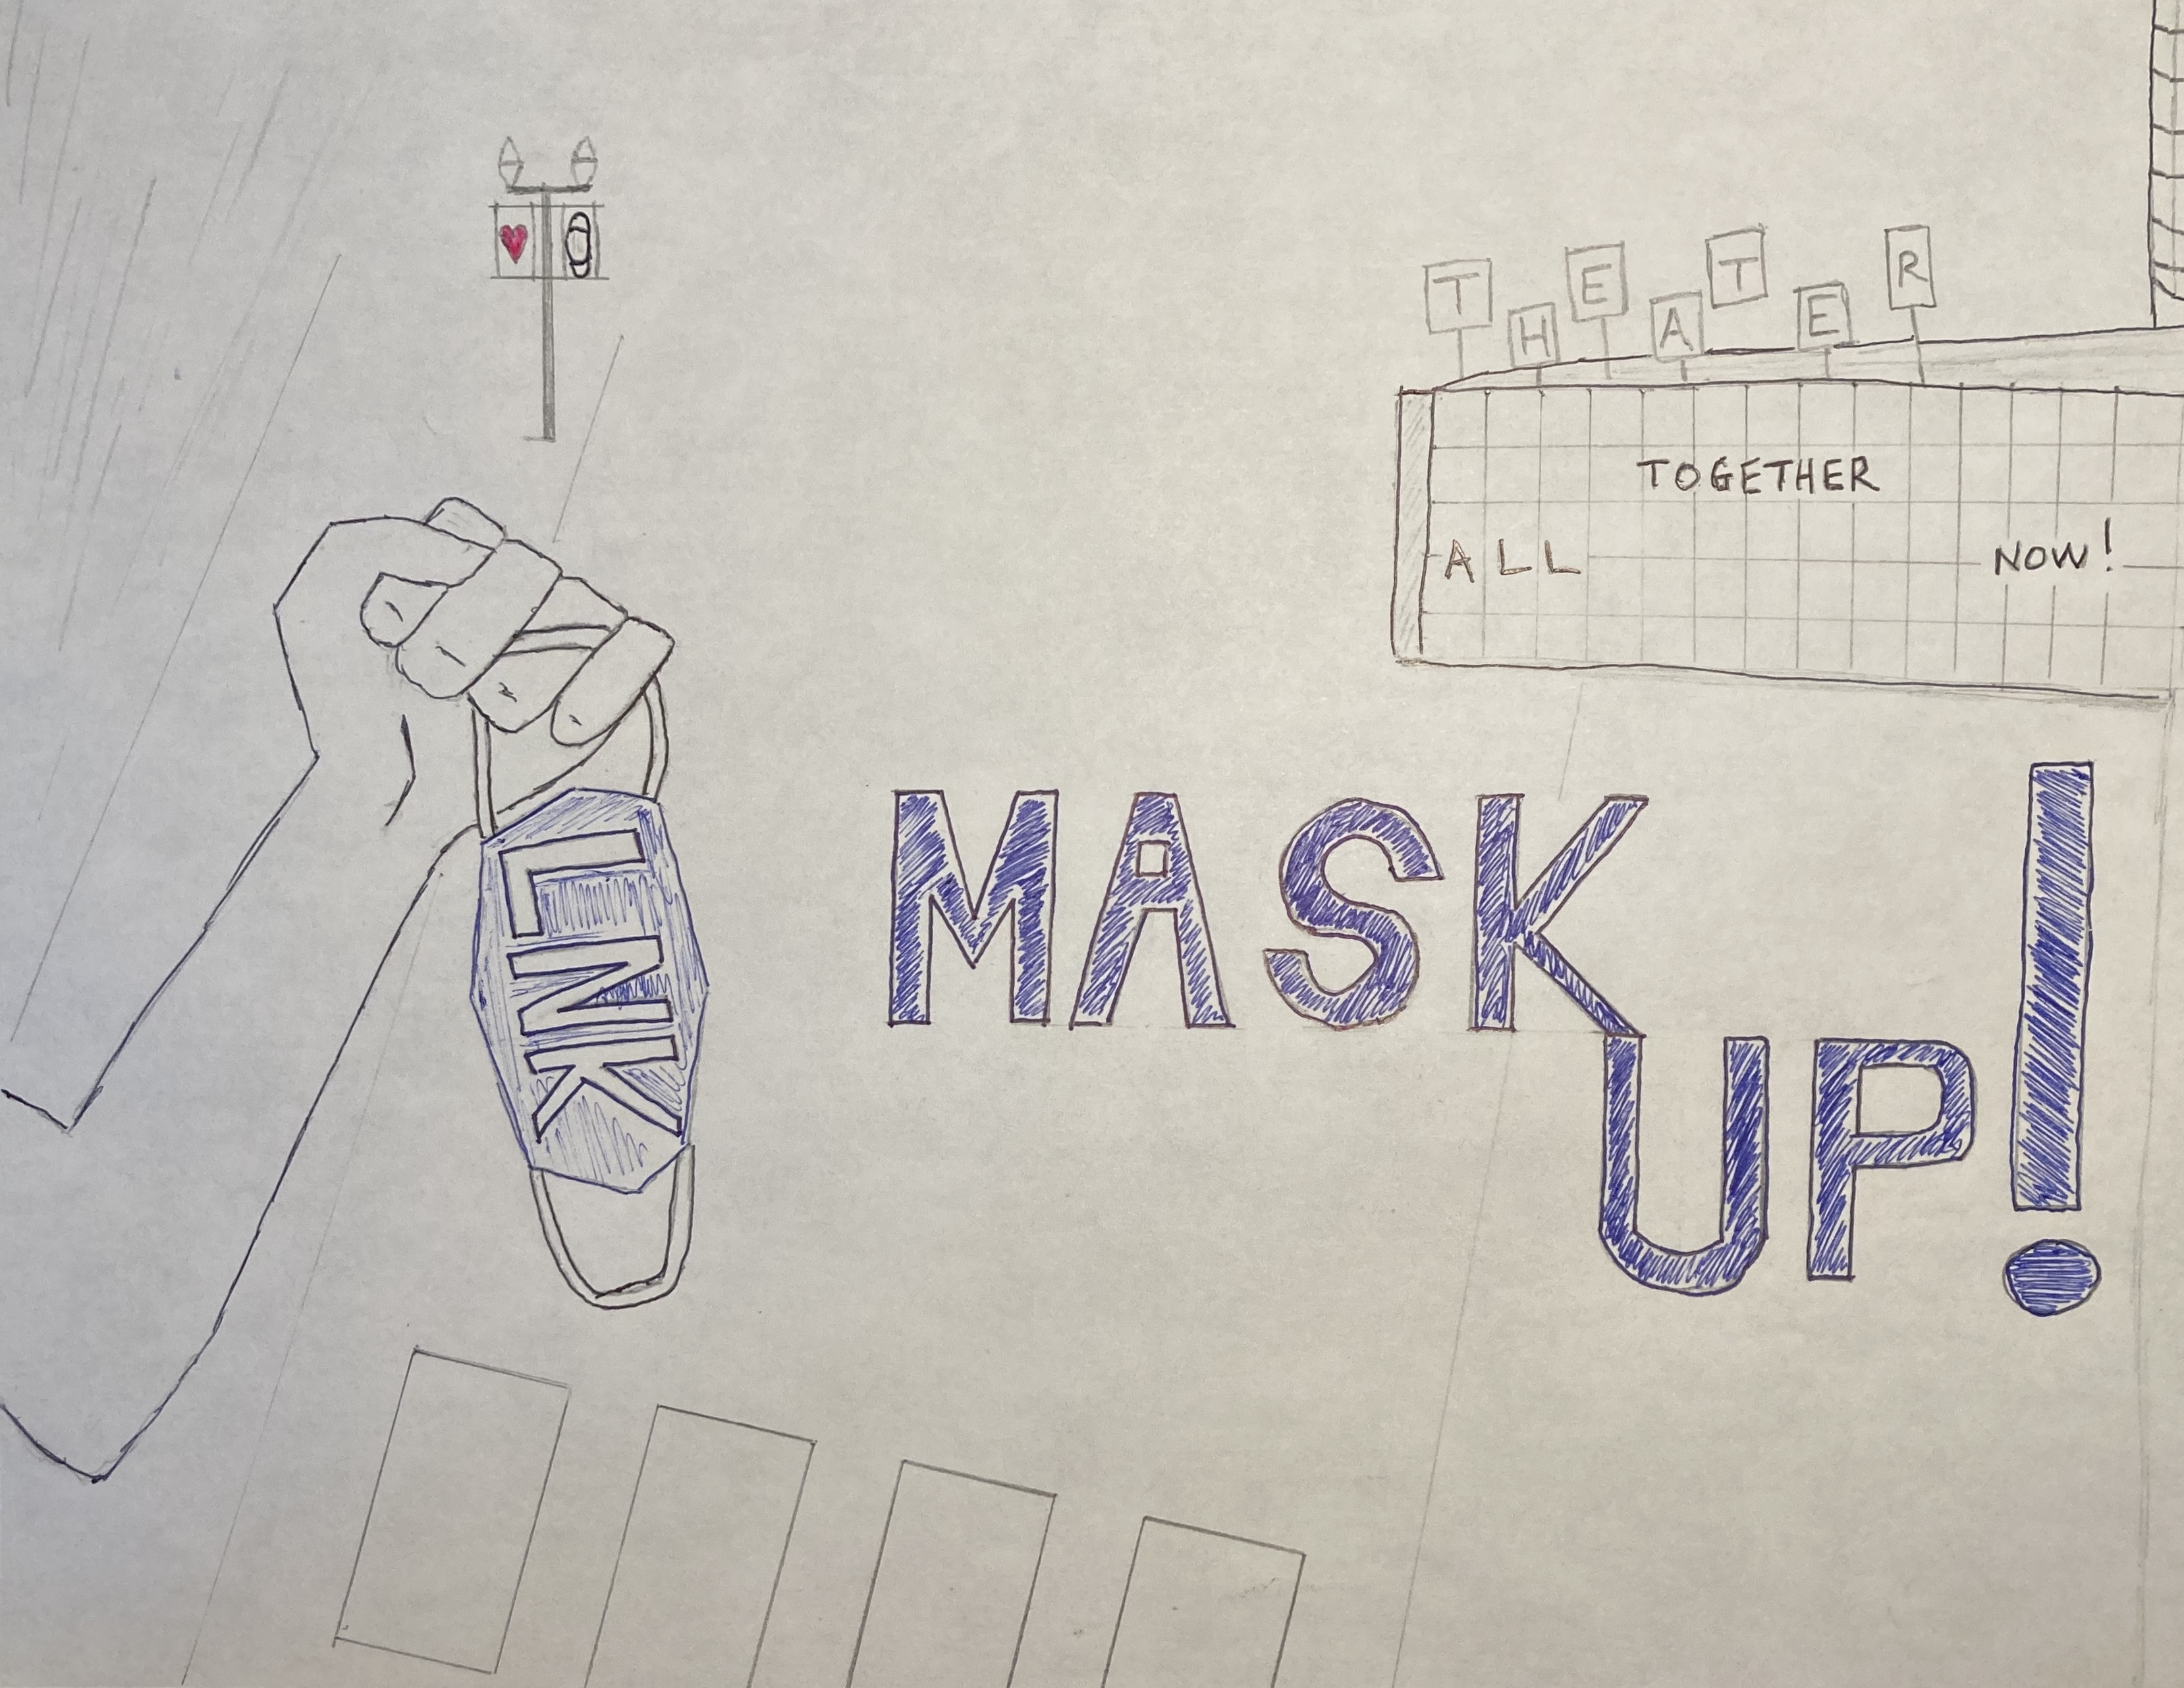 THEATER
TOGETHER
ALL NOW!
LNK
MASK
UP!